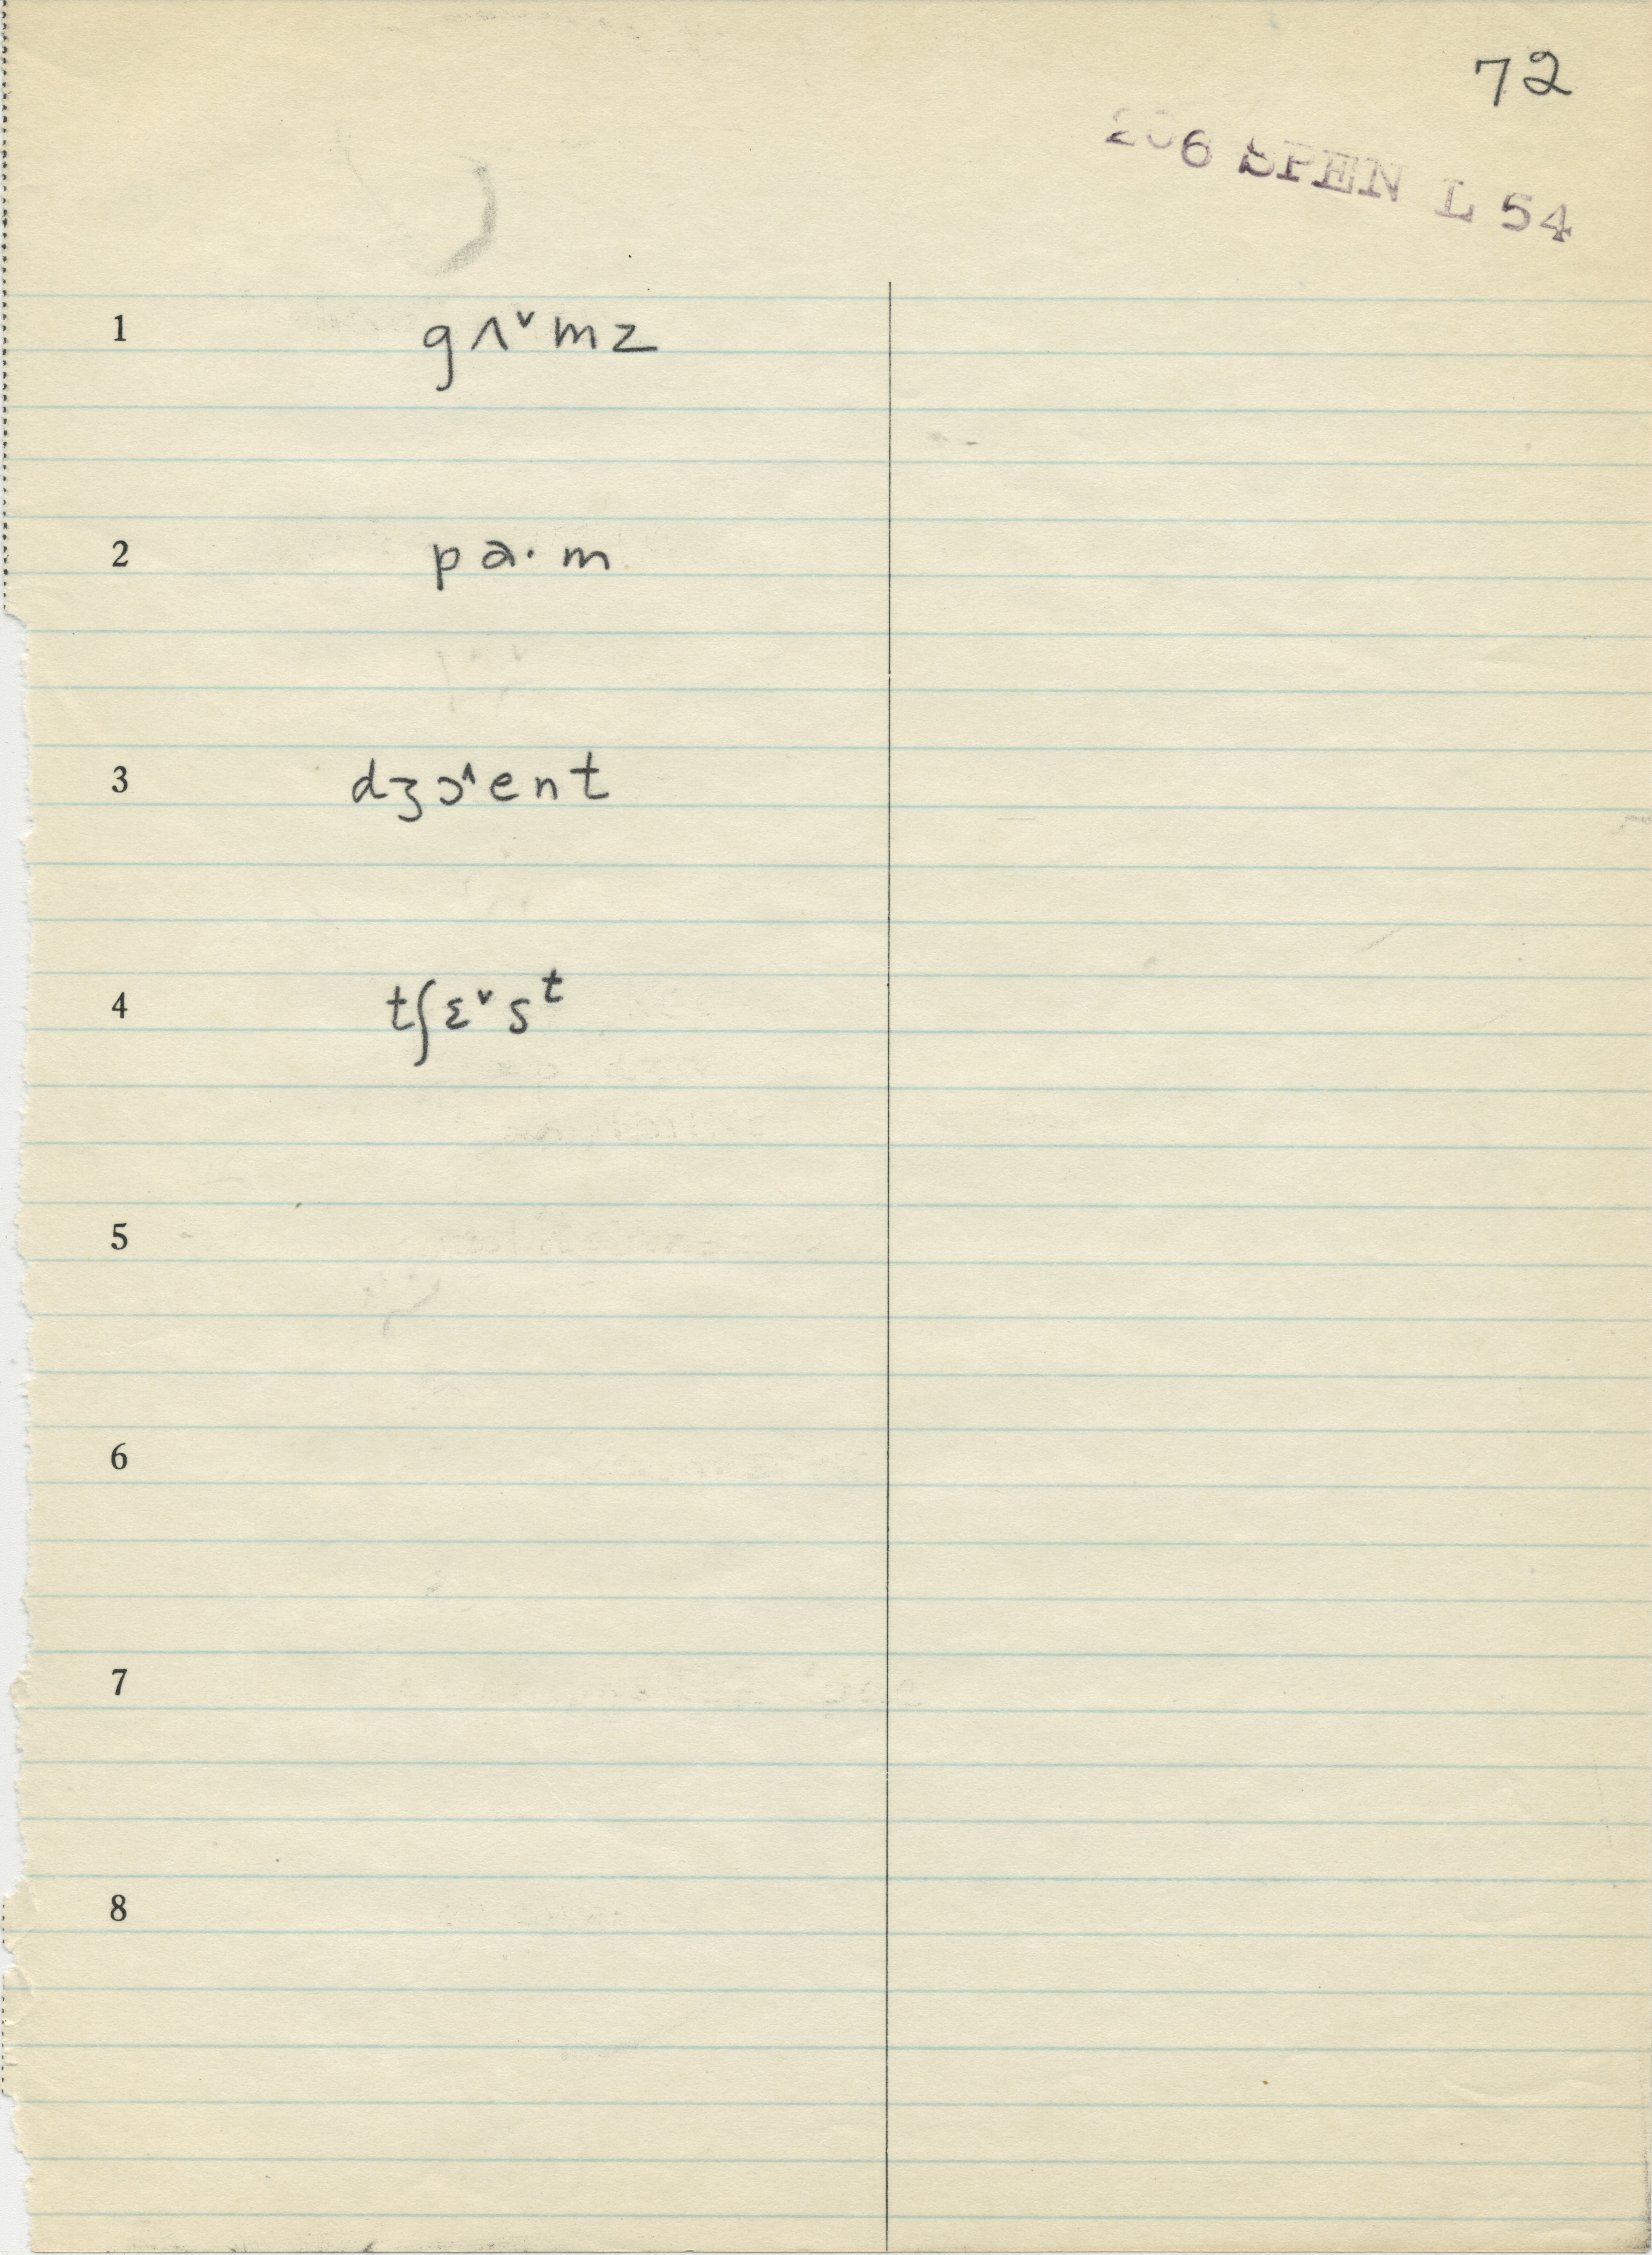 72
206 SPEN L 54
1 gʌ˅mz
2 pa·m
3 dʒɔ˄ent
4 tʃɛ˅sᵗ
5
6
7
8